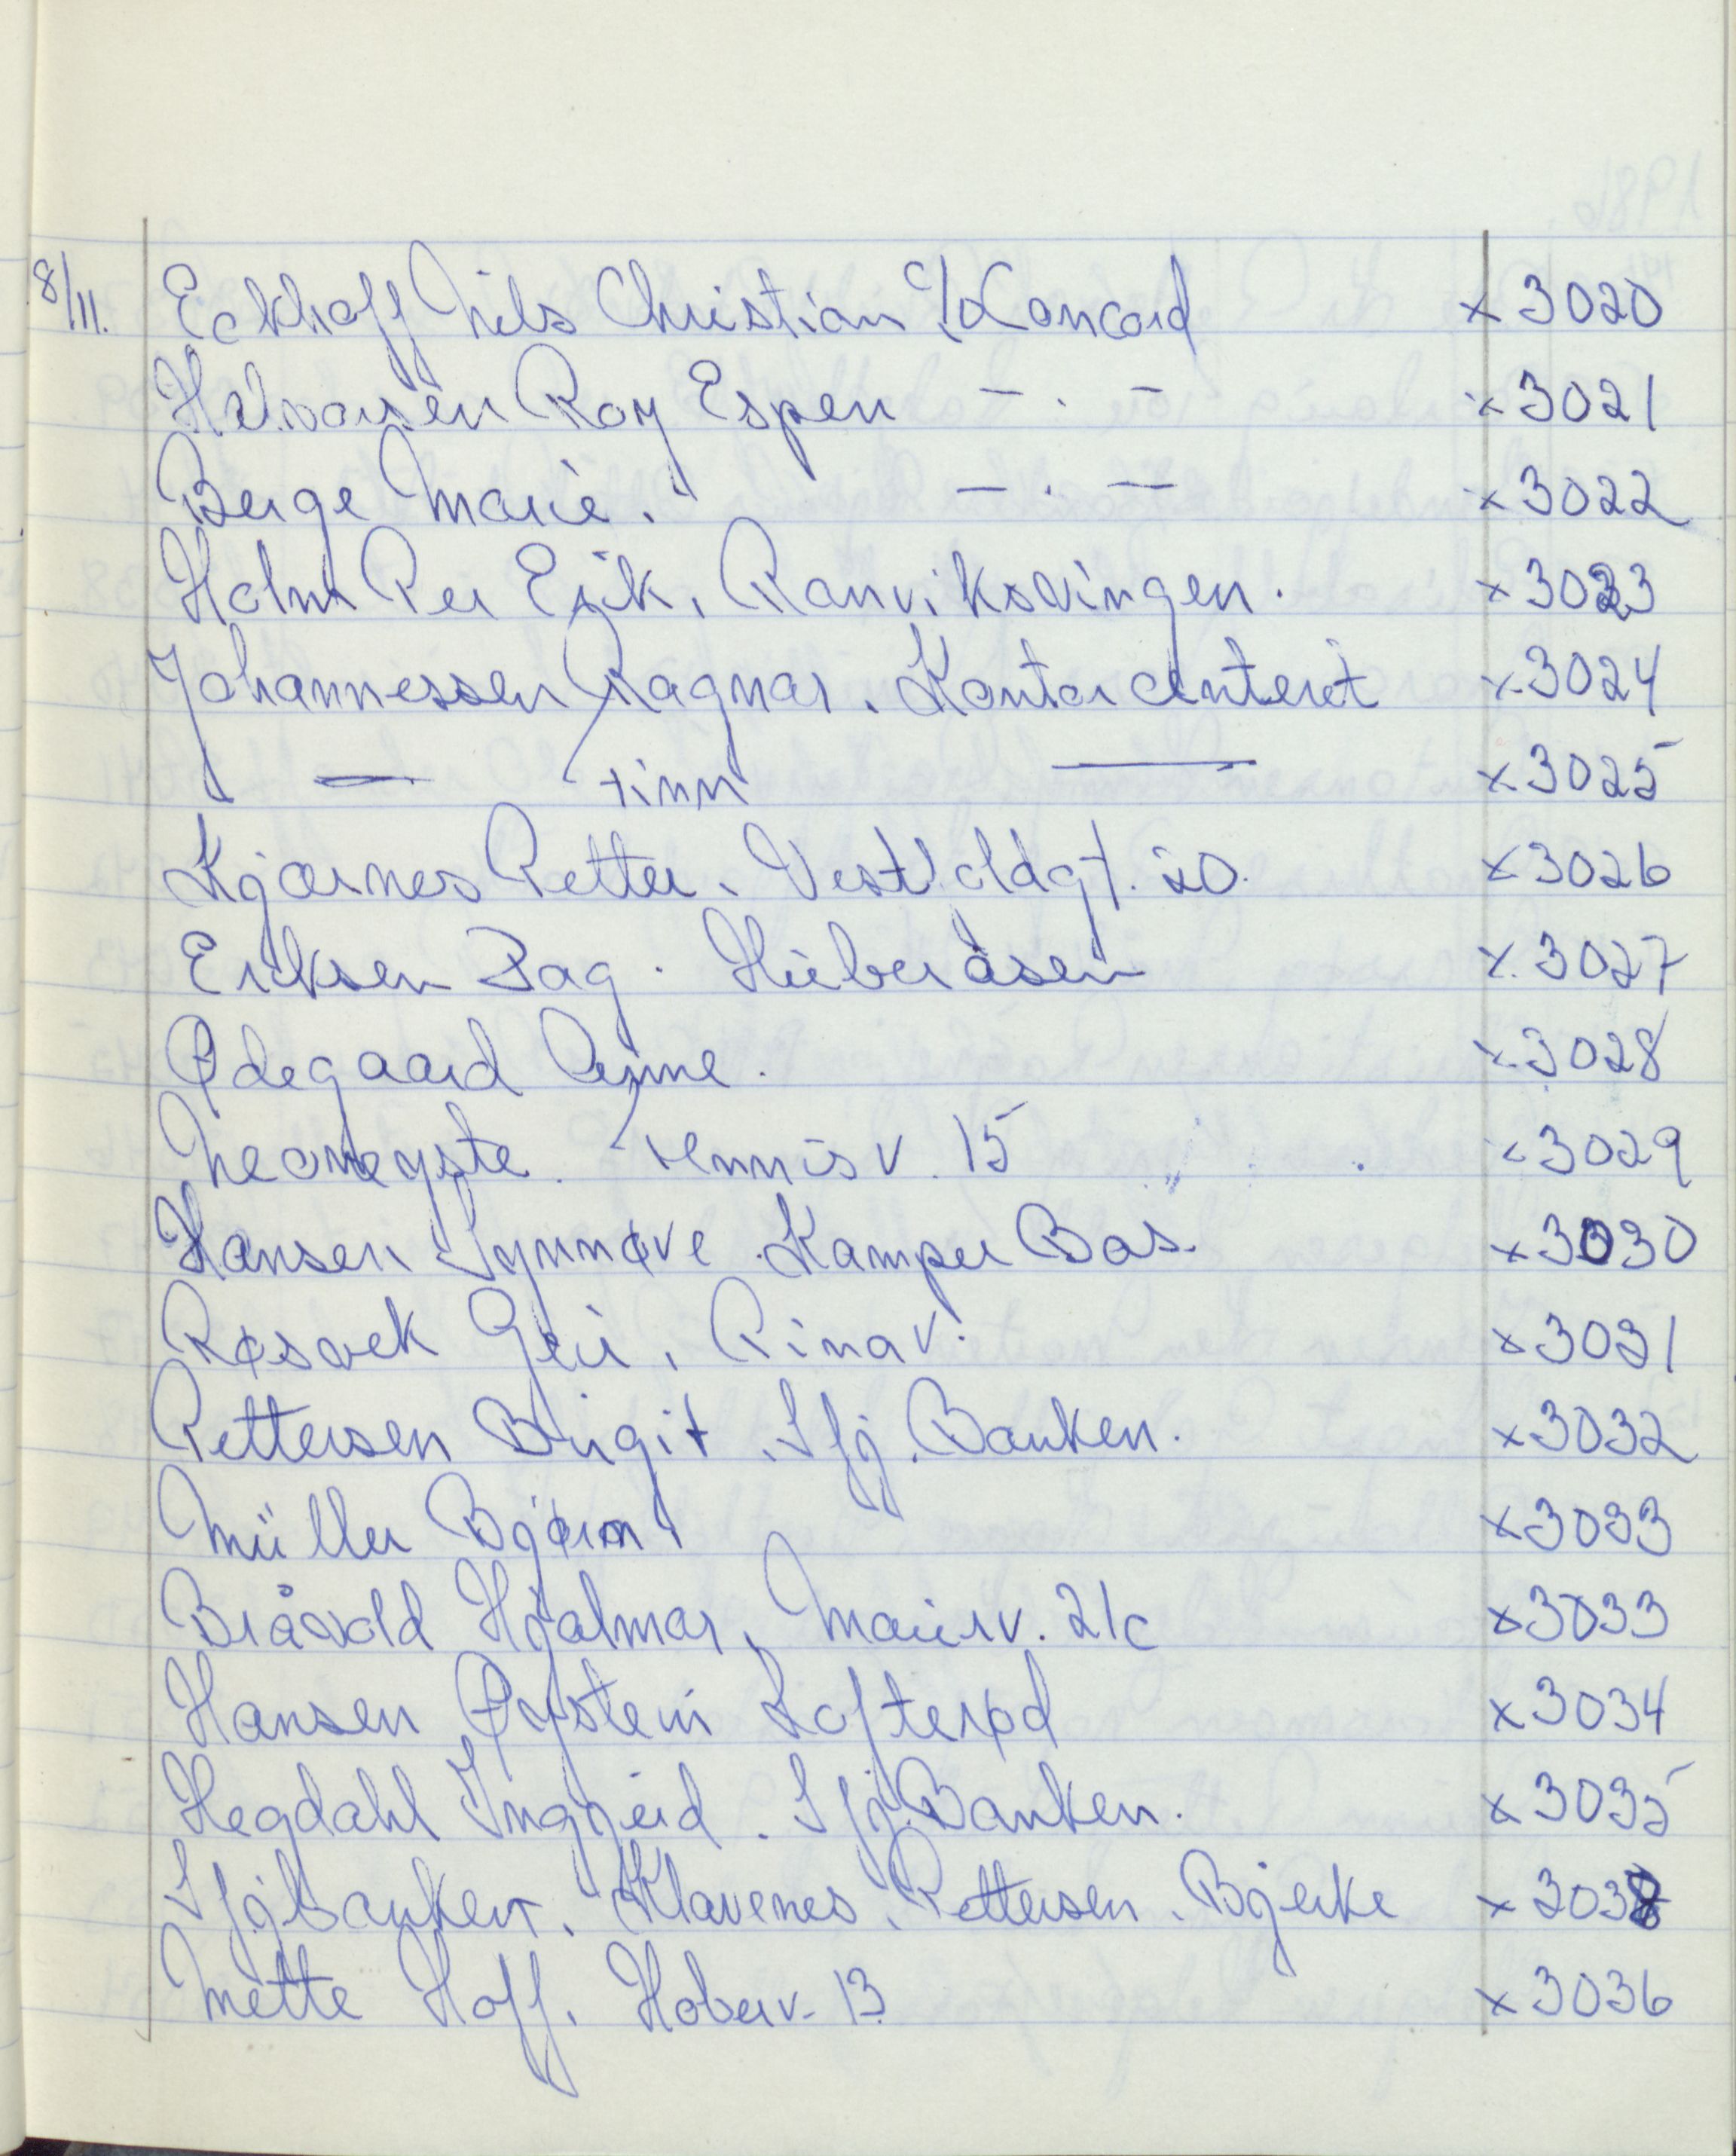 8/11. Eckhoff Nils Christian c/o Lancard x 3020
Halvorsen Roy Espen - . - x 3021
Berge Marie. - . - x 3022
Holm Per Erik, Ranviksvingen. x 3023
Johannessen Ragnar. Kontorcenteret x 3024
— Finn — x 3025
Kjærnes Petter. Vestfoldgt. 20. x 3026
Eriksen Dag. Huberåsen x. 3027
Ødegaard Anne. x 3028
Tennisv. 15 x 3029
Hansen Synnøve Kamper Bos. x 3030
Røsvek Geir, Pinav. x 3031
Pettersen Birgit. Sfj. Banken. x 3032
Müller Bjørn x 3033
Bråvold Hjalmar, Maierv. 21c x 3033
Hansen Øystein Lofterød x 3034
Hegdahl Inggerd. Sfj. Banken. x 3035
Sfjbanken. Klavenes, Pettersen. Bjerke x 3038
Mette Hoff. Hoberv. 13 x 3036